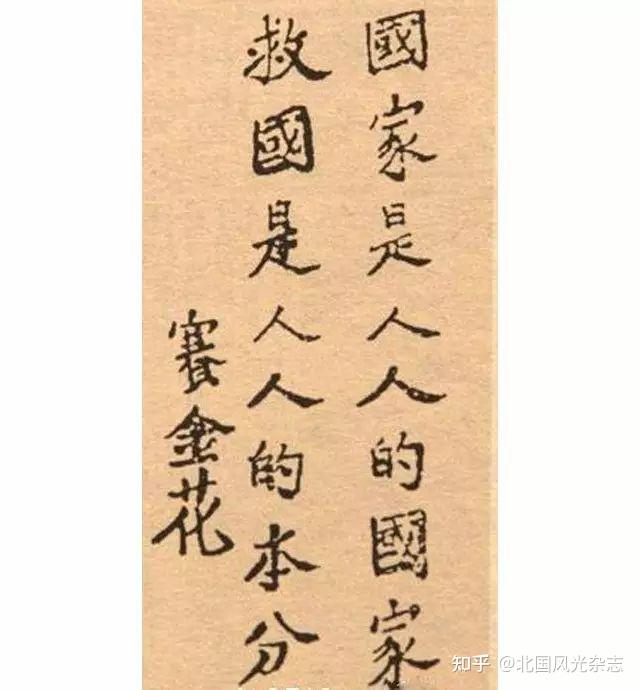 國家是人人的國家
救國是人人的本分
賽金花
知乎 @北国风光杂志